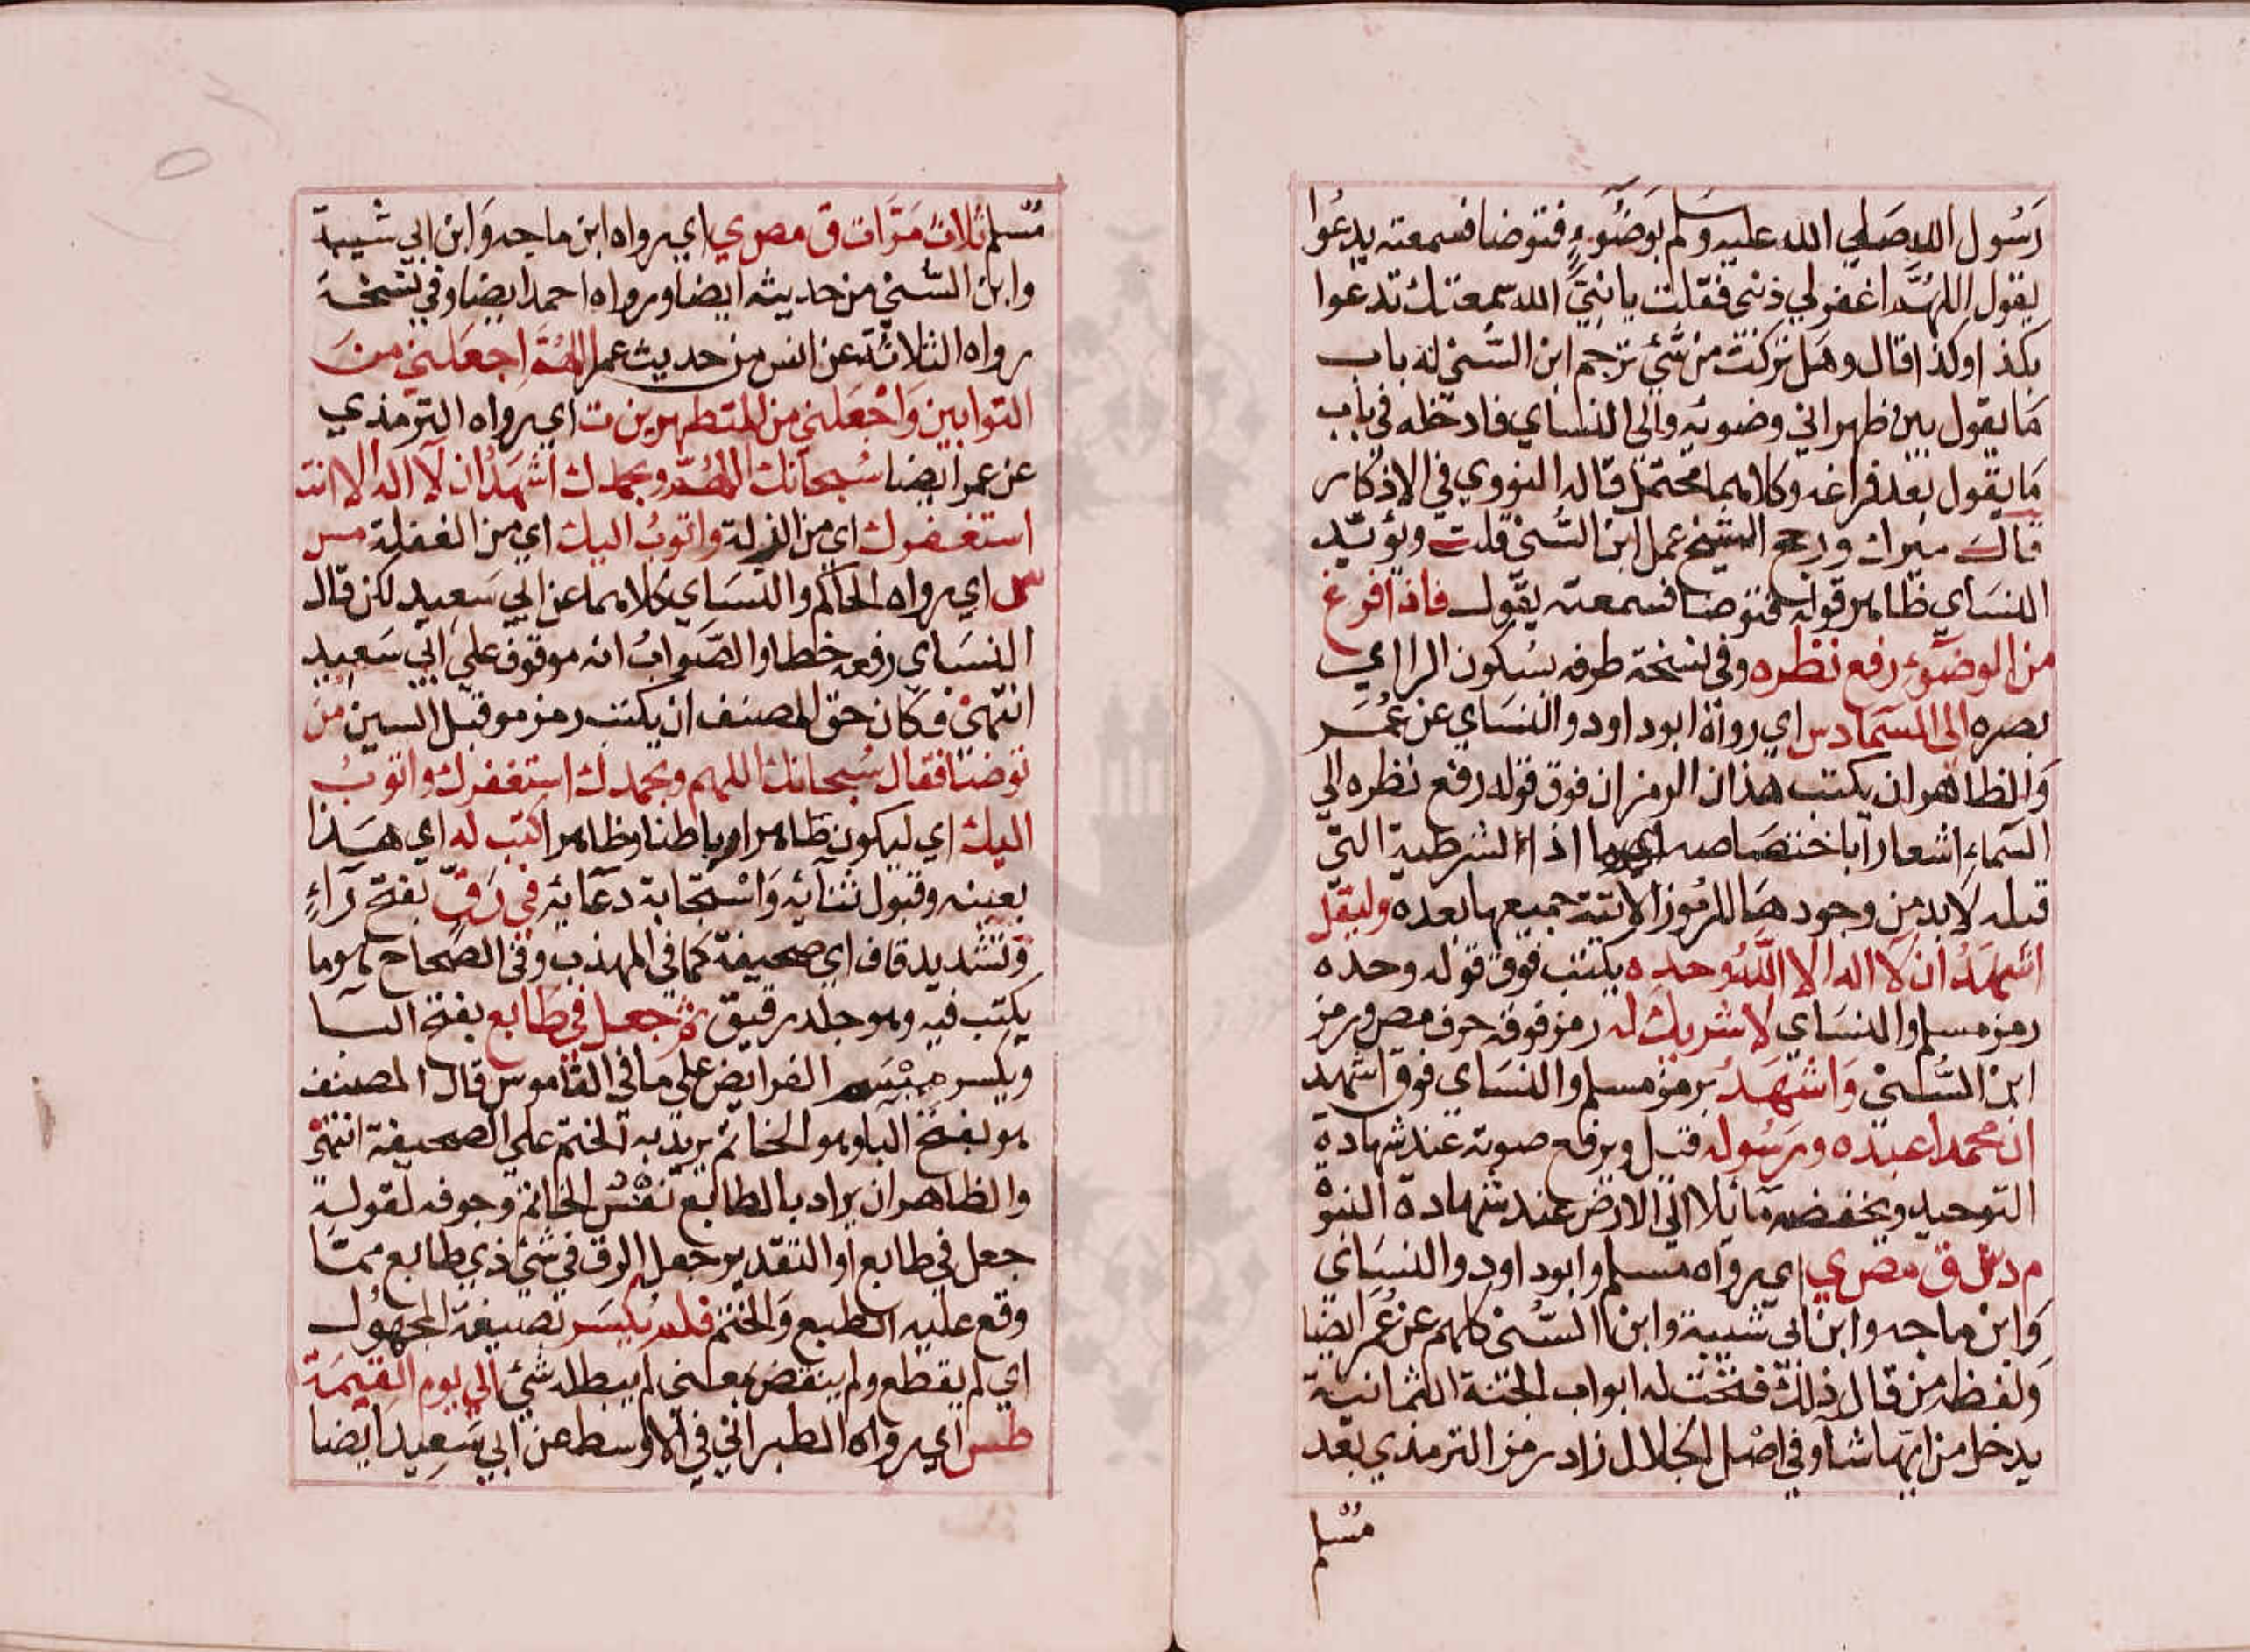 رسول الله صلى الله عليه وسلم بوضوء فتوضا فسمعته يدعوا
يقول اللهم اغفر لي ذنبي فقلت يا نبي الله سمعتك تدعوا
بكذا وكذا قال وهل تركت من شئ ترجم ابن السني له باب
ما يقول بين ظهراني وضوئه واما النساي فادخله في باب
ما يقول بعد فراغه وكلاهما محتمل قاله النووي في الاذكار
قال ميرك ورجح الشيخ عمل ابن السني قلت ويؤيد
النساي ظاهر قوله فتوضا فسمعته يقول فاذا فرغ
من الوضوء رفع نظره وفي نسخة طرفه بسكون الرا اي
بصره الى السما د س اي رواه ابو داود والنساي عن عمر
والظاهر ان يكتب هذان الرمزان فوق قوله رفع نظره الي
السماء اشعارا باختصاصه بهما اذ الشرطية التي
قبله لا بد من وجودها للرموز الاتية جميعها بعده وليقل
اشهد ان لا اله الا الله وحده يكتب فوق قوله وحده
رمز مسلم والنساي لا شريك له رمز فوقه حرف مص ورمز
ابن السني واشهد برمز مسلم والنساي فوق اشهد
ان محمدا عبده ورسوله قيل ويرفع صوته عند شهادة
التوحيد ويخفضه مائلا الى الارض عند شهادة النبوة
م د س ق مص ي اي رواه مسلم وابو داود والنساي
وابن ماجه وابن ابي شيبة وابن السني كلهم عن عمر ايضا
ولفظه من قال ذلك فتحت له ابواب الجنة الثمانية
يدخل من ايها شا وفي اصل الجلال زاد رمز الترمذي بعد
مسلم
مسلم ثلاث مرات ق مص ي اي رواه ابن ماجه وابن ابي شيبة
وابن السني من حديثه ايضا ورواه احمد ايضا وفي نسخة
رواه الثلاثة عن انس من حديث عمر اللهم اجعلني من
التوابين واجعلني من المتطهرين ت اي رواه الترمذي
عن عمر ايضا سبحانك اللهم وبحمدك اشهد ان لا اله الا انت
استغفرك اي من الزلة واتوب اليك اي من الغفلة مس
س اي رواه الحاكم والنساي كلاهما عن ابي سعيد لكن قال
النساي رفعه خطا والصواب انه موقوف على ابي سعيد
انتهى فكان حق المصنف ان يكتب رمز مو قبل السين من
توضا فقال سبحانك اللهم وبحمدك استغفرك واتوب
اليك اي ليكون طاهرا باطنا وظاهرا كتب له اي هذا
بعينه وقبول ثنائه واستجابة دعائه في رق بفتح راء
وتشديد قاف اي صحيفة كما في المهذب وفي الصحاح هو ما
يكتب فيه وهو جلد رقيق ثم جعل في طابع بفتح البا
ويكسر ميسم الفرايض على ما في القاموس قال المصنف
هو بفتح البا وهو الخاتم يريد به الختم على الصحيفة انتهى
والظاهر ان يراد بالطابع نقش الخاتم وجوفه لقوله
جعل في طابع او التقدير جعل الرق في شئ ذي طابع مما
وقع عليه الطبع والختم فلم يكسر بصيغة المجهول
اي لم يقطع ولم ينقض بمعنى لم يبطله شئ الي يوم القيمة
طس اي رواه الطبراني في الاوسط عن ابي سعيد ايضا